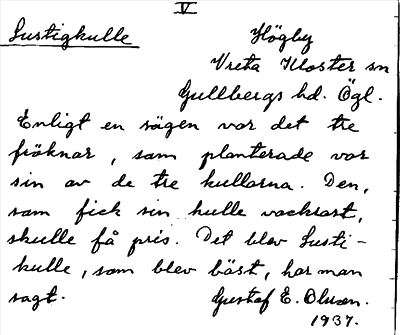 V
Lustigkulle Högby
Vreta Kloster sn
Gullbergs hd. Ögl.
Enligt en sägen var det tre
fröknar, som planterade var
sin av de tre kullarna. Den,
som fick sin kulle vackrast,
skulle få pris. Det blev Lusti-
kulle, som blev bäst, har man
sagt. Gustaf E. Olsson.
1937.